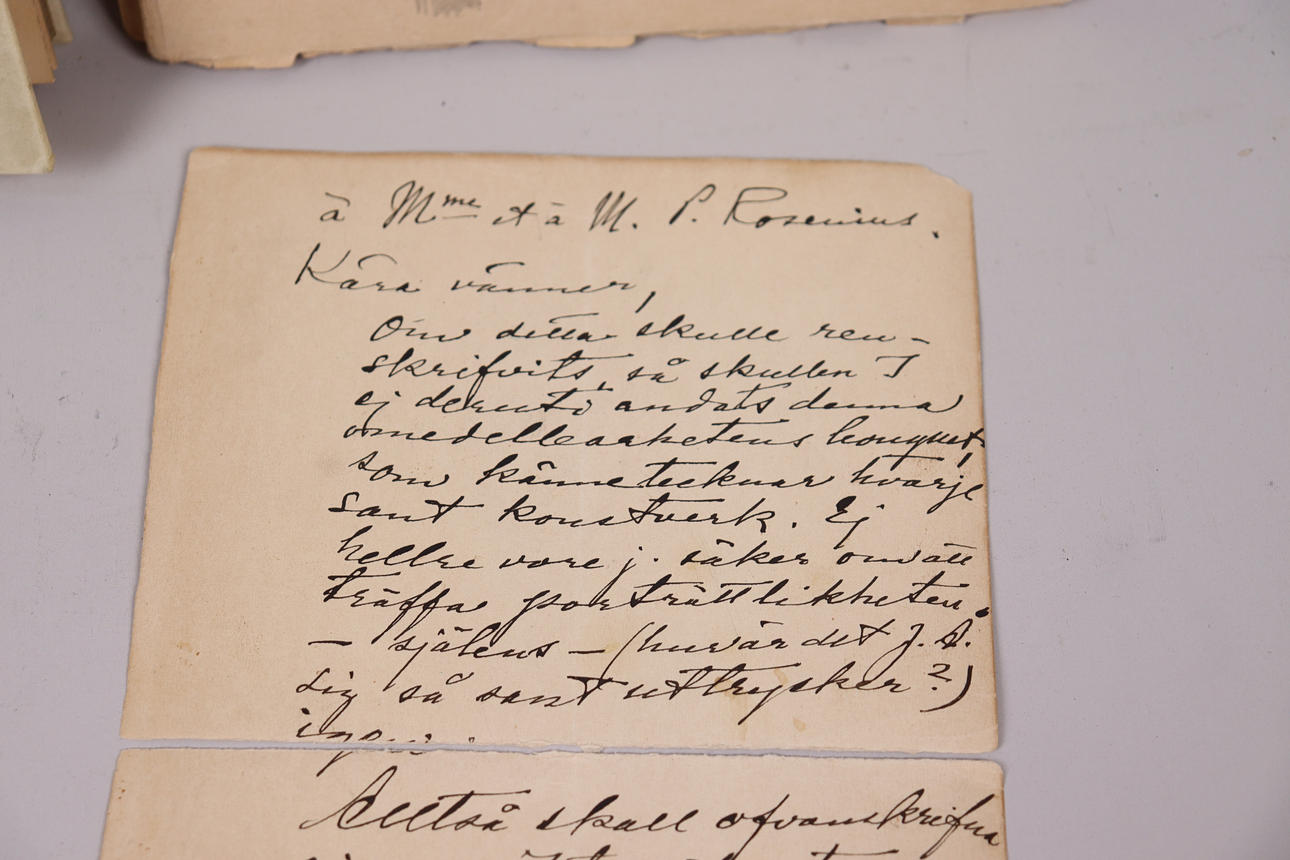 à Mme et à M. P. Rosenius.
Kära vänner,
Om detta skulle ren-
skrifvits, så skullen I
ej deruti andats denna
omedelbarhetens bouquet,
som kännetecknar hvarje
sant konstverk. Ej
hellre vore j. säker om att
träffa porträttlikheten.
— själens — (hur är det J. S.
sig så sant uttrycker?)
Alltså skall ofvanskrifna